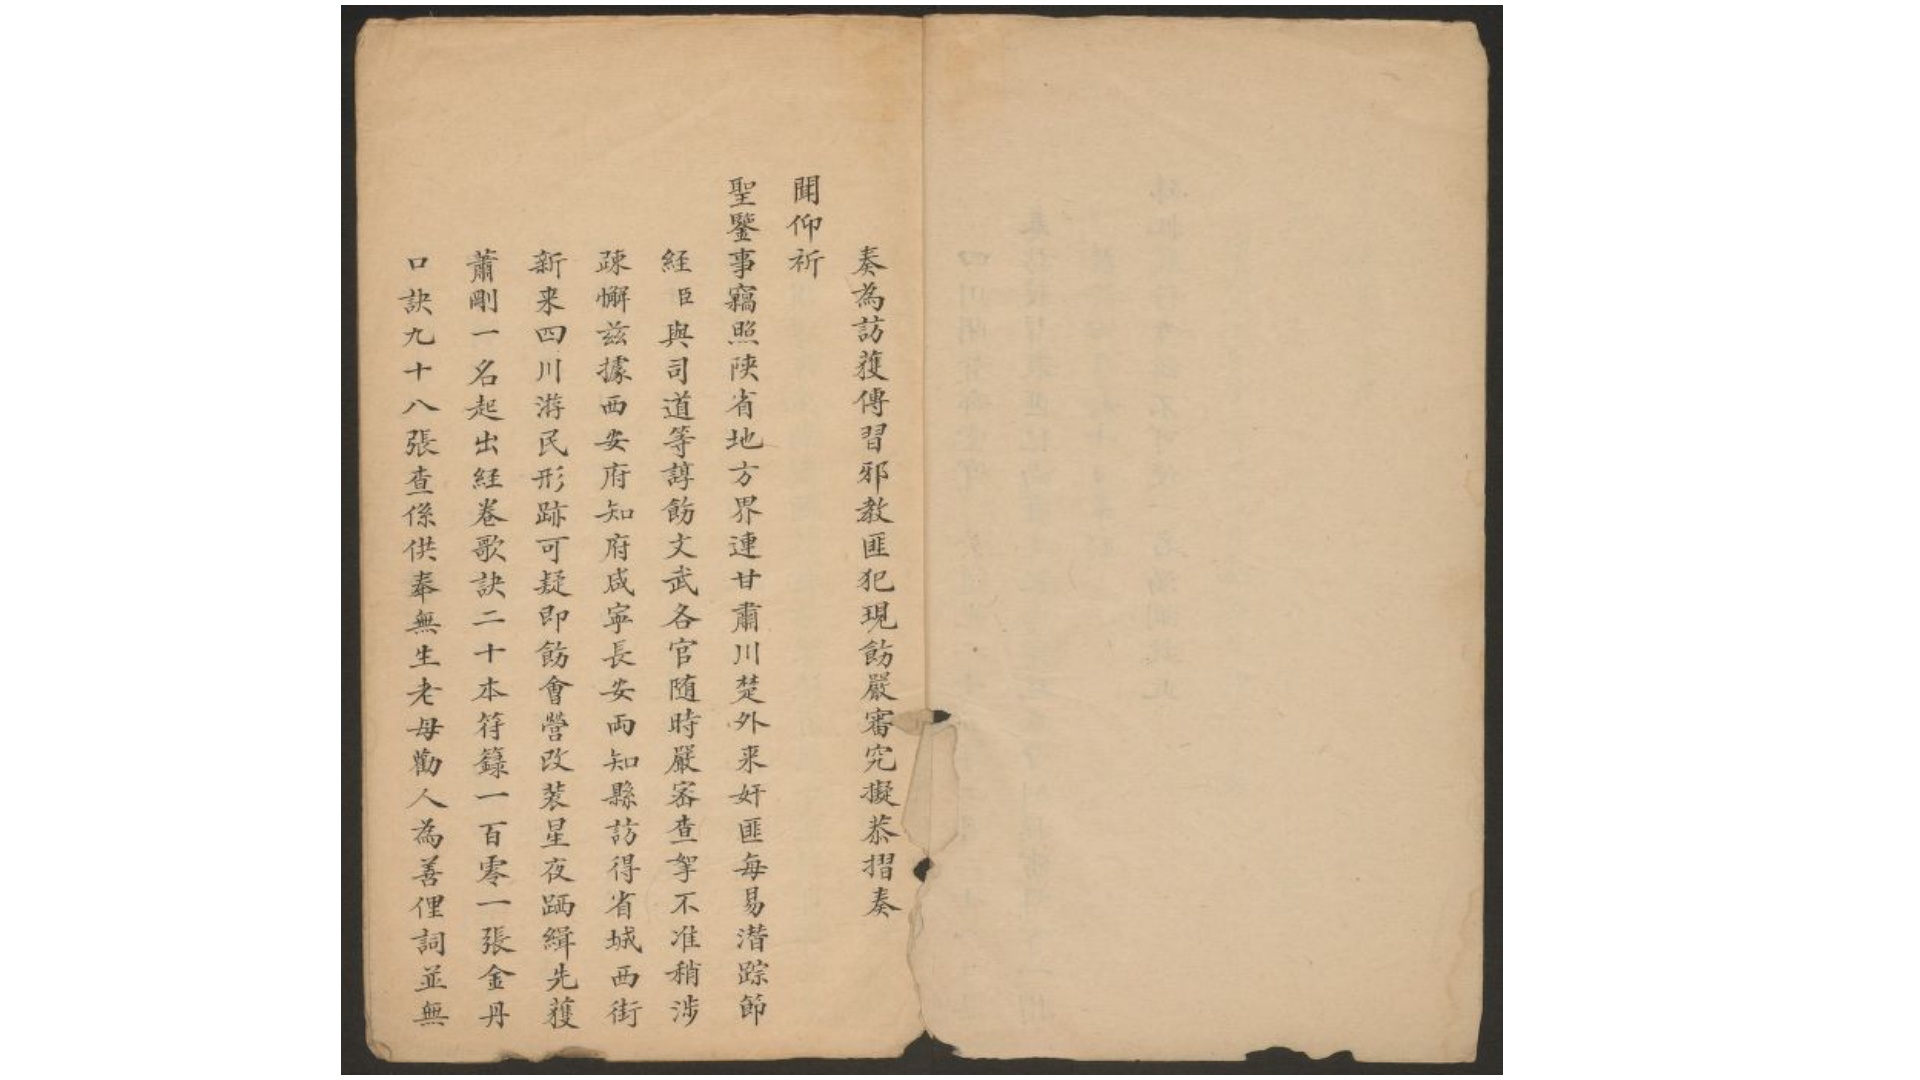 奏為訪獲傳習邪教匪犯現飭嚴審究擬恭摺奏
聞仰祈
聖鑒事竊照陕省地方界連甘肅川楚外来奸匪每易潛踪節
経臣與司道等諄飭文武各官随時嚴宻查拏不准稍涉
疎懈兹據西安府知府咸寧長安両知縣訪得省城西街
新来四川游民形跡可疑即飭會營改装星夜跴緝先獲
蕭剛一名起出経卷歌訣二十本符籙一百零一張金丹
口訣九十八張查係供奉無生老母勸人為善俚詞並無